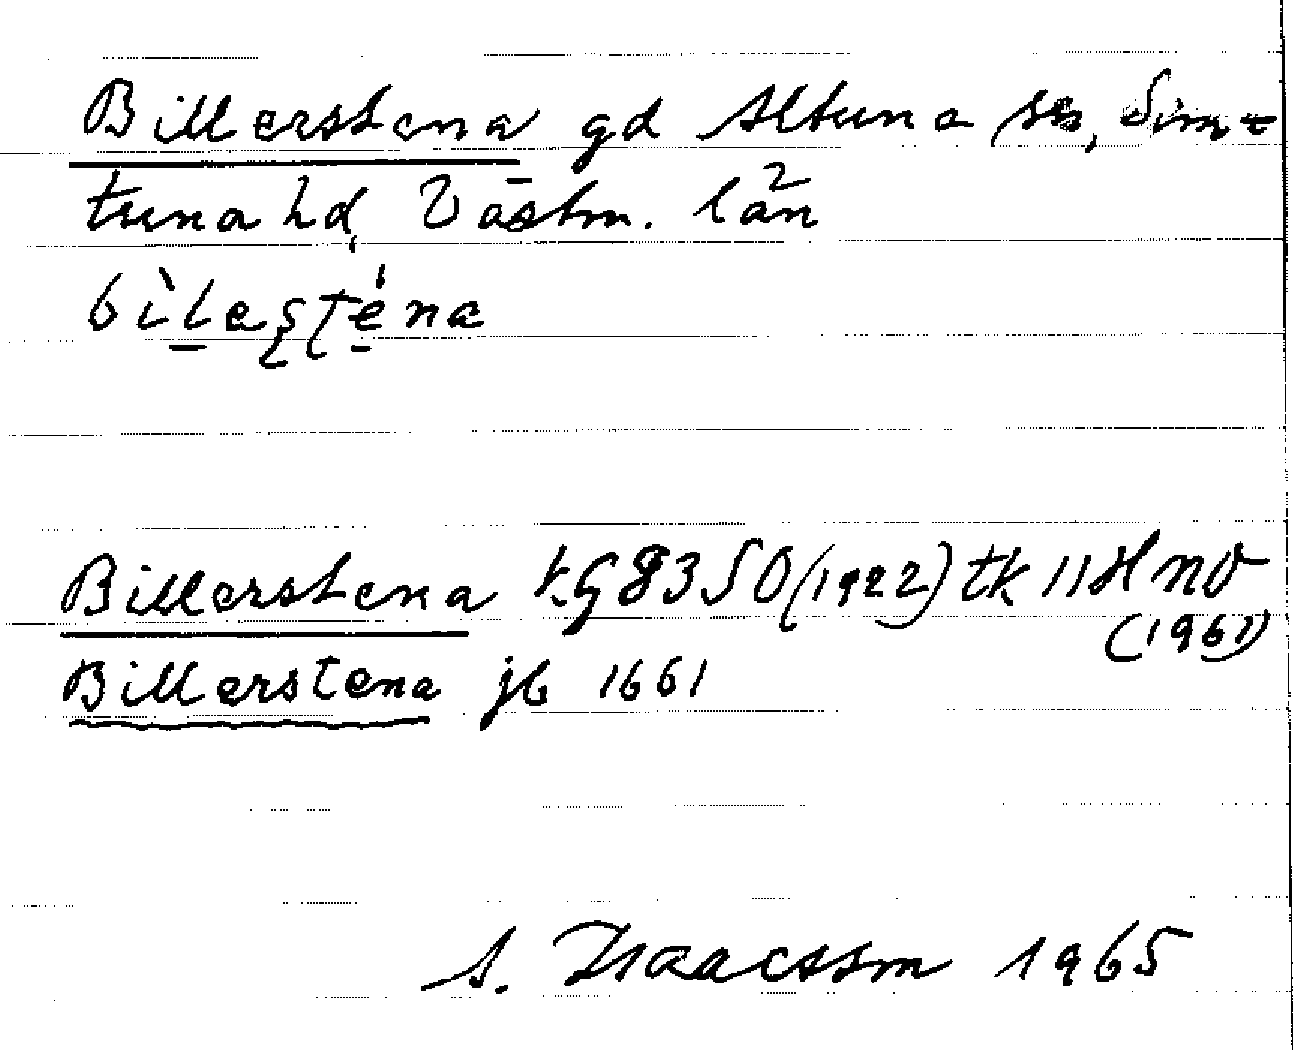 Billerstena gd Altuna sn, Sim-
tuna hd, Västm. län
bìlesténa
Billerstena kG 8350 (1922) tk 11H NV
(1961)
Billerstena jb 1661
A. Isaacsson 1965